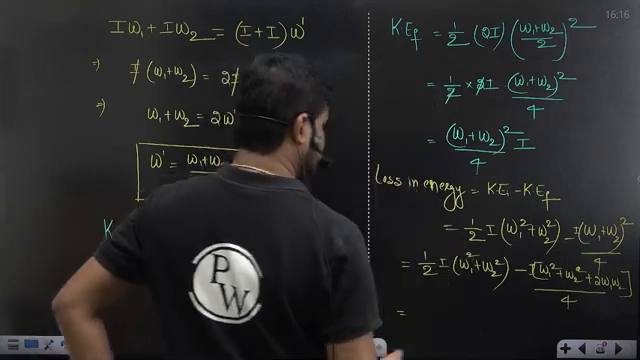 16:16
Iω₁ + Iω₂ = (I+I)ω'
⇒ I(ω₁+ω₂) = 2I
⇒ ω₁+ω₂ = 2ω'
ω' = ω₁+ω₂
K
P
W
K.E_f = 1/2 (2I) ((ω₁+ω₂)/2)²
= 1/2 × 2I (ω₁+ω₂)²/4
= (ω₁+ω₂)²/4 I
Loss in energy = K.E_i − K.E_f
= 1/2 I(ω₁²+ω₂²) − I(ω₁+ω₂)²/4
= 1/2 I(ω₁²+ω₂²) − I[ω₁²+ω₂²+2ω₁ω₂]/4
=